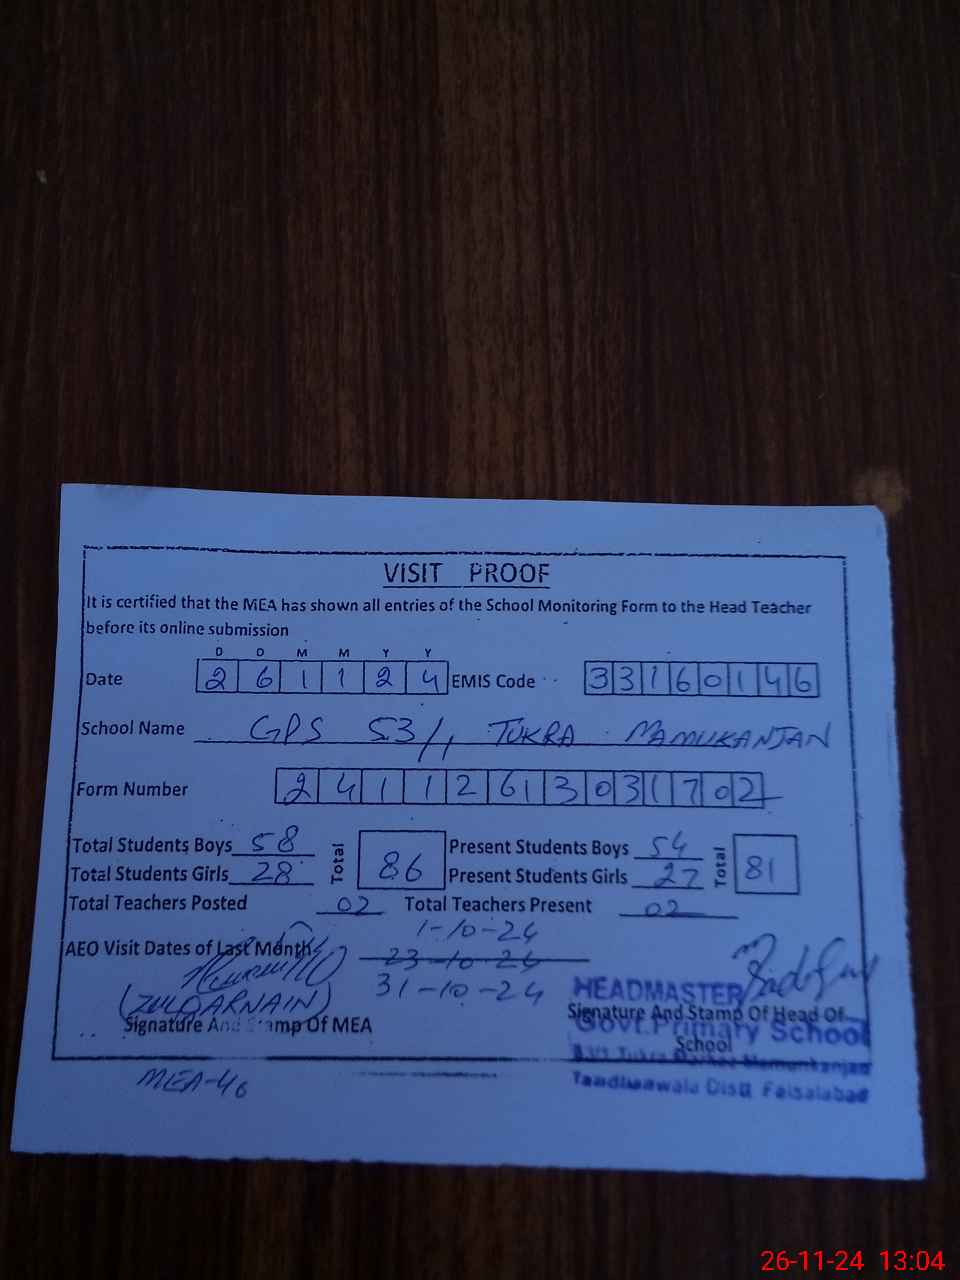 VISIT PROOF
It is certified that the MEA has shown all entries of the School Monitoring Form to the Head Teacher
before its online submission
D D M M Y Y
Date 2 6 1 1 2 4 EMIS Code 3 3 1 6 0 1 4 6
School Name GPS 53/1 TUKRA MAMUKANJAN
Form Number 2 4 1 1 2 6 1 3 0 3 1 7 0 2
Total Students Boys 58 Total 86 Present Students Boys 54 Total 81
Total Students Girls 28 Present Students Girls 27
Total Teachers Posted 02 Total Teachers Present 02
1-10-24
AEO Visit Dates of Last Month 23-10-24
31-10-24
(ZULQARNAIN)
Signature And Stamp Of MEA
HEADMASTER
Signature And Stamp Of Head Of
Govt. Primary School
School
Tukra Mamunkanjan
Tandlianwala Distt. Faisalabad
MEA-46
26-11-24 13:04